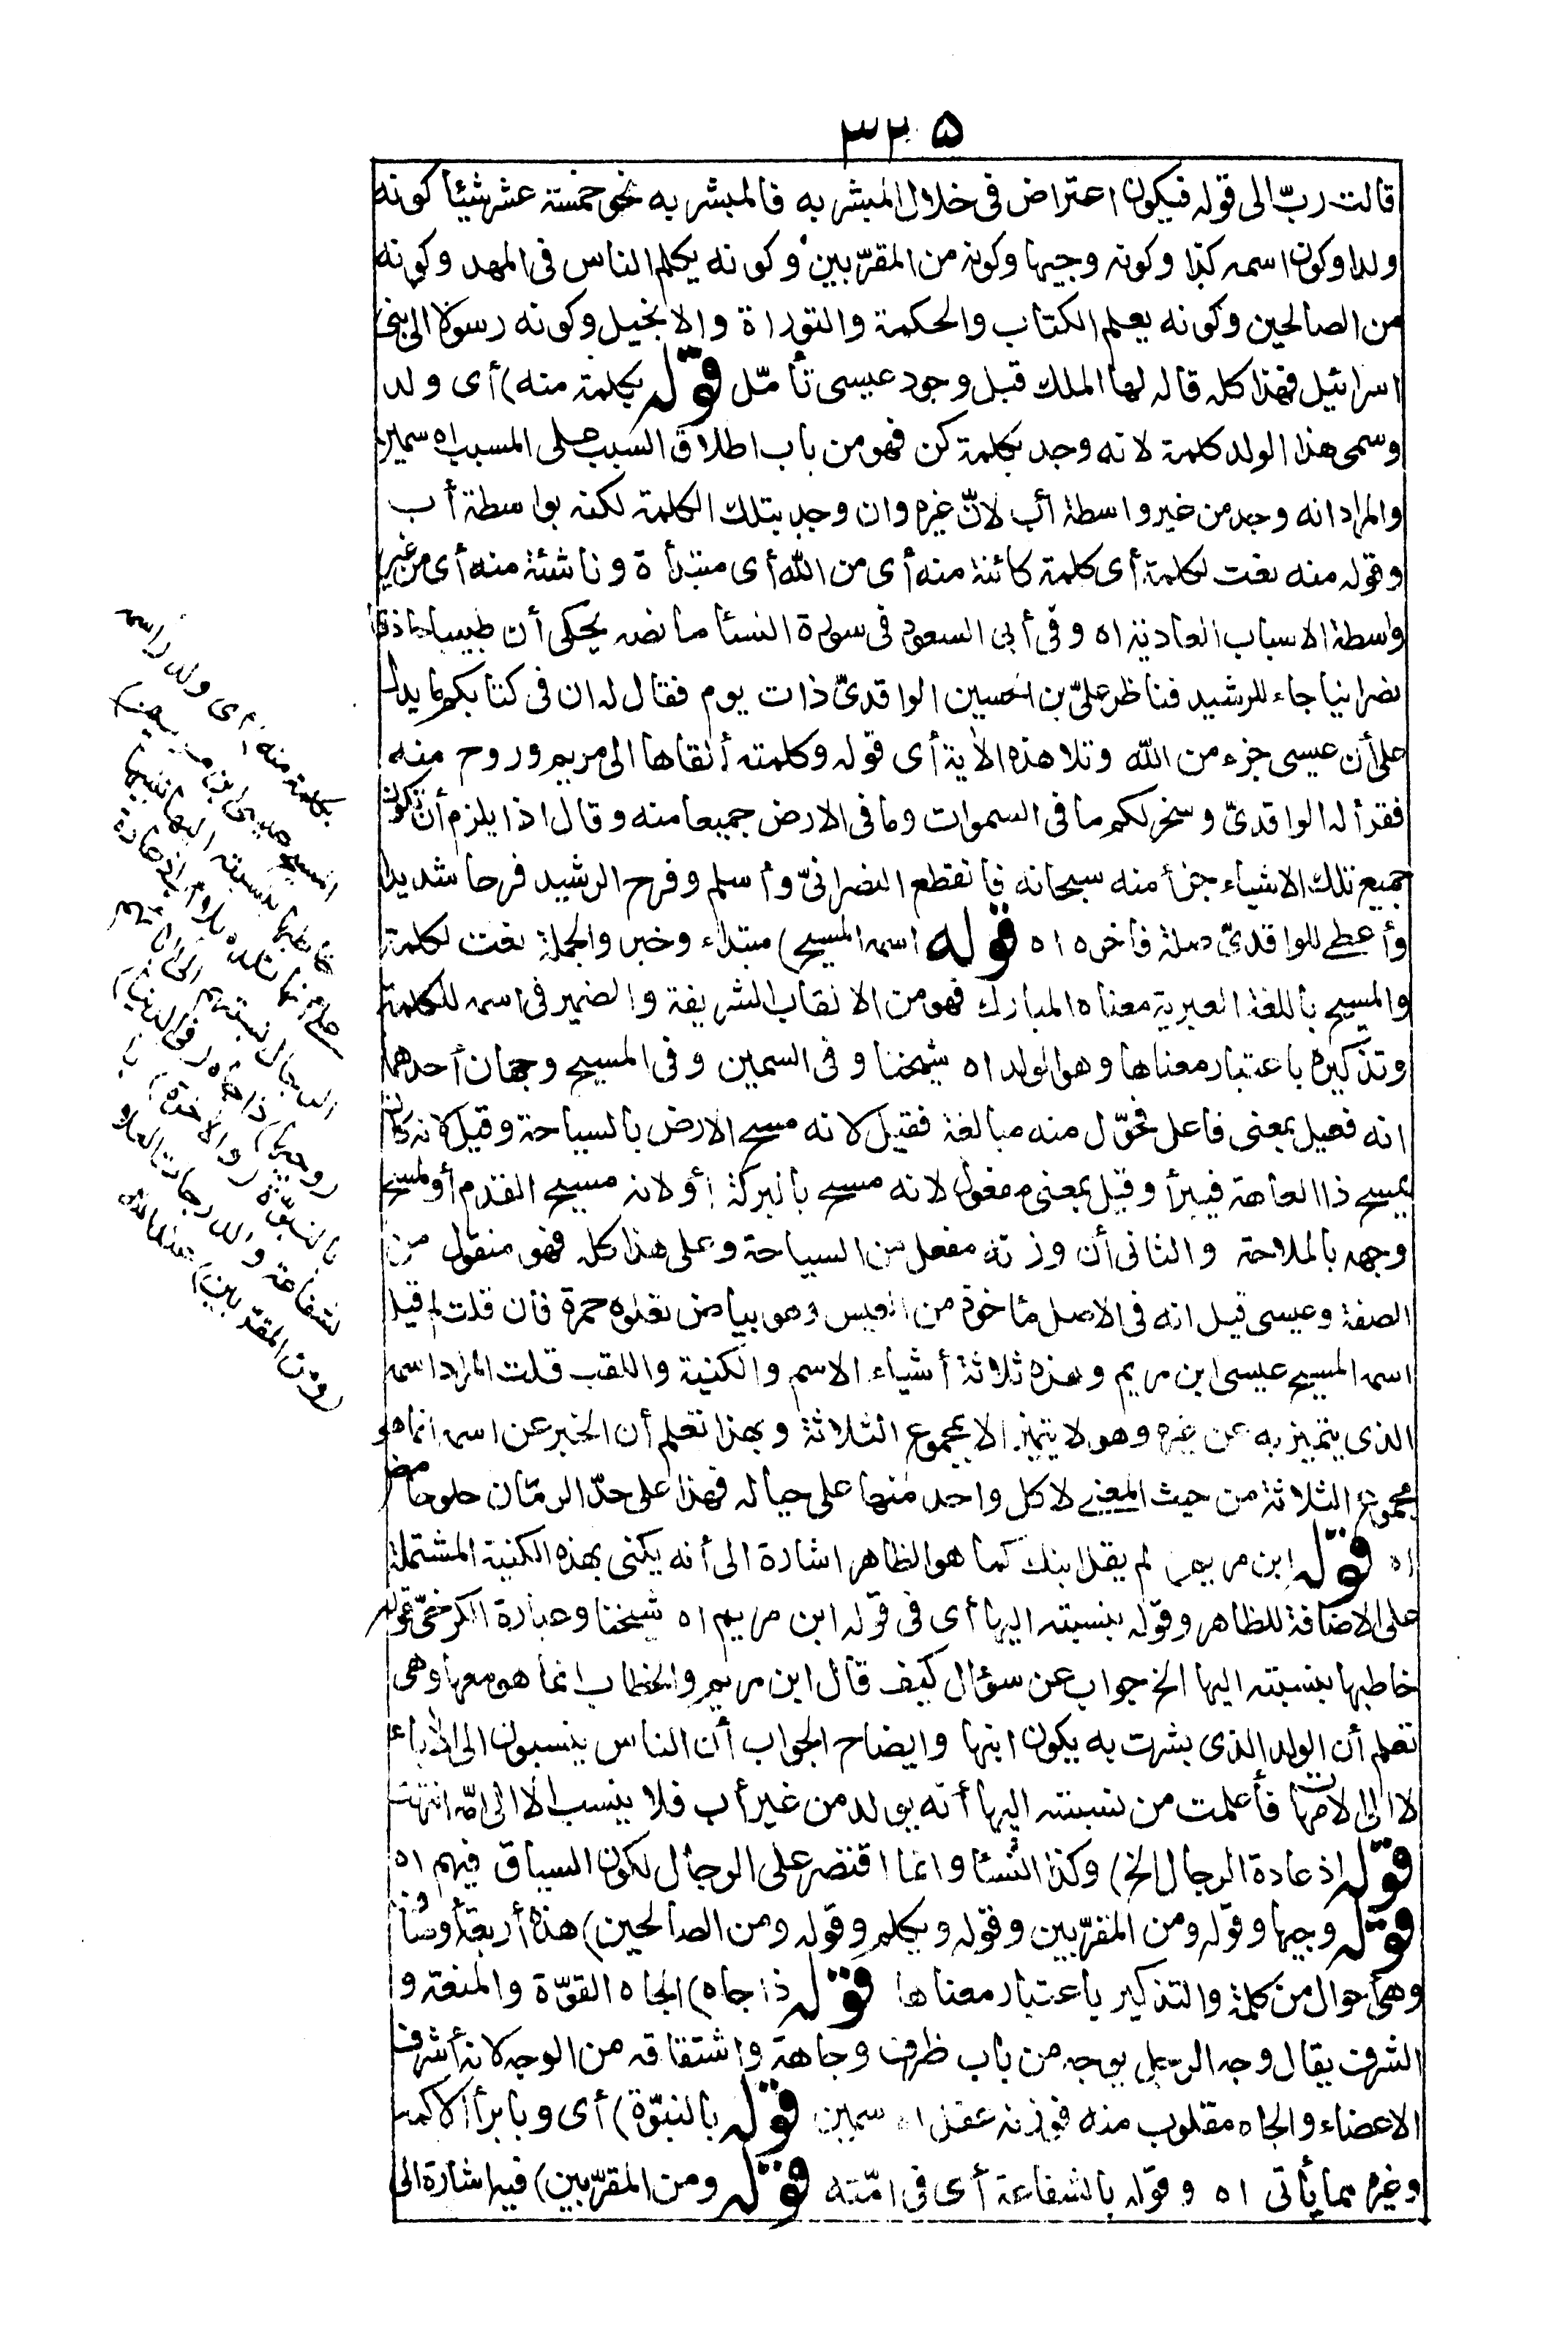 ٣٢٥
قالت رب الى قوله فيكون اعتراض فى خلال المبشر به فالمبشر به نحو خمسة عشر شيئا كونه
ولدا وكون اسمه كذا وكونه وجيها وكونه من المقرّبين وكونه يكلم الناس فى المهد وكونه
من الصالحين وكونه يعلم الكتاب والحكمة والتوراة والانجيل وكونه رسولا الى بنى
اسرائيل فهذا كله قاله لها الملك قبل وجود عيسى تأمّل قوله بكلمة منه) أى ولد
وسمى هذا الولد كلمة لانه وجد بكلمة كن فهو من باب اطلاق السبب على المسبب اه سمين
والمراد انه وجد من غير واسطة أب لانّ غيره وان وجد بتلك الكلمة لكنه بواسطة أب
وقوله منه نعت لكلمة أى كلمة كائنة منه أى من الله أى مبتدأة وناشئة منه أى من غير
واسطة الاسباب العادية اه وفى أبى السعود فى سورة النسا مانصه يحكى أن طبيبا حاذقا
نصرانيا جاء للرشيد فناظر علىّ بن الحسين الواقدىّ ذات يوم فقال له ان فى كتابكم ما يدل
على أن عيسى جزء من الله وتلا هذه الأية أى قوله وكلمته ألقاها الى مريم وروح منه
فقرأ له الواقدىّ وسخر لكم ما فى السموات وما فى الارض جميعا منه وقال اذا يلزم أن تكون
جميع تلك الاشياء جزأ منه سبحانه فانقطع النصرانىّ وأسلم وفرح الرشيد فرحا شديدا
وأعطى للواقدىّ صلة فاخره اه قوله اسمه المسيح) مبتداء وخبر والجملة نعت لكلمة
والمسيح باللغة العبرية معناه المبارك فهو من الالقاب الشريفة والضمير فى اسمه للكلمة
وتذكيره باعتبار معناها وهو الولد اه شيخنا وفى السمين وفى المسيح وجهان أحدهما
انه فعيل بمعنى فاعل محوّل منه مبالغة فقيل لانه مسح الارض بالسياحة وقيل لانه كان
يمسح ذا العاهة فيبرأ وقيل بمعنى مفعول لانه مسح بالبركة أو لانه مسيح القدم أو لمسح
وجهه بالملاحة والثانى أن وزنه مفعل من السياحة وعلى هذا كله فهو منقول من
الصفة وعيسى قيل انه فى الاصل مأخوذ من العيس وهو بياض تعلوه حمرة فان قلت لم قيل
اسمه المسيح عيسى ابن مريم وهذه ثلاثة أشياء الاسم والكنية واللقب قلت المراد اسمه
الذى يتميز به عن غيره وهو لا يتميز الا بمجموع الثلاثة وبهذا تعلم أن الخبر عن اسمه انما هو
مجموع الثلاثة من حيث المعنى لا كل واحد منها على حياله فهذا على حدّ الرمّان حلو حامض
اه قوله ابن مريم) لم يقل ابنك كما هو الظاهر اشارة الى أنه يكنى بهذه الكنية المشتملة
على الاضافة للظاهر وقوله بنسبته اليها أى فى قوله ابن مريم اه شيخنا وعبارة الكرخىّ قوله
خاطبها بنسبته اليها الخ جواب عن سؤال كيف قال ابن مريم والخطاب انما هو معها وهى
تعلم أن الولد الذى بشرت به يكون ابنها وايضاح الجواب أن الناس ينسبون الى الأباء
لا الى الامهات فأعلمت من نسبته اليها أنه يولد من غير أب فلا ينسب الا الى امّه انتهت
قوله اذ عادة الرجال الخ) وكذا النسا وانما اقتصر على الرجال لكون السياق فيهم اه
قوله وجيها وقوله ومن المقرّبين وقوله ويكلم وقوله ومن الصالحين) هذه أربعة أوصاف
وهى أحوال من كلمة والتذكير باعتبار معناها قوله ذا جاه) الجاه القوّة والمنعة و
الشرف يقال وجه الرجل يوجه من باب ظرف وجاهة واشتقاقه من الوجه لانه أشرف
الاعضاء والجاه مقلوب منه فوزنه عفل اه سمين قوله بالنبوّة) أى وبابرأ الاكمه
وغيره مما يأتى اه وقوله بالشفاعة أى فى امّته قوله ومن المقرّبين) فيه اشارة الى
بكلمة منه) أى ولد (اسمه
المسيح عيسى ابن مريم)
خاطبها بنسبته اليها تنبيها
على أنها تلده بلا أب اذ عادة
الرجال نسبتهم الى أبائهم
(وجيها) ذا جاه (فى الدنيا)
بالنبوّة (والأخرة) با
لشفاعة والدرجات العلا
(ومن المقرّبين) عند الله